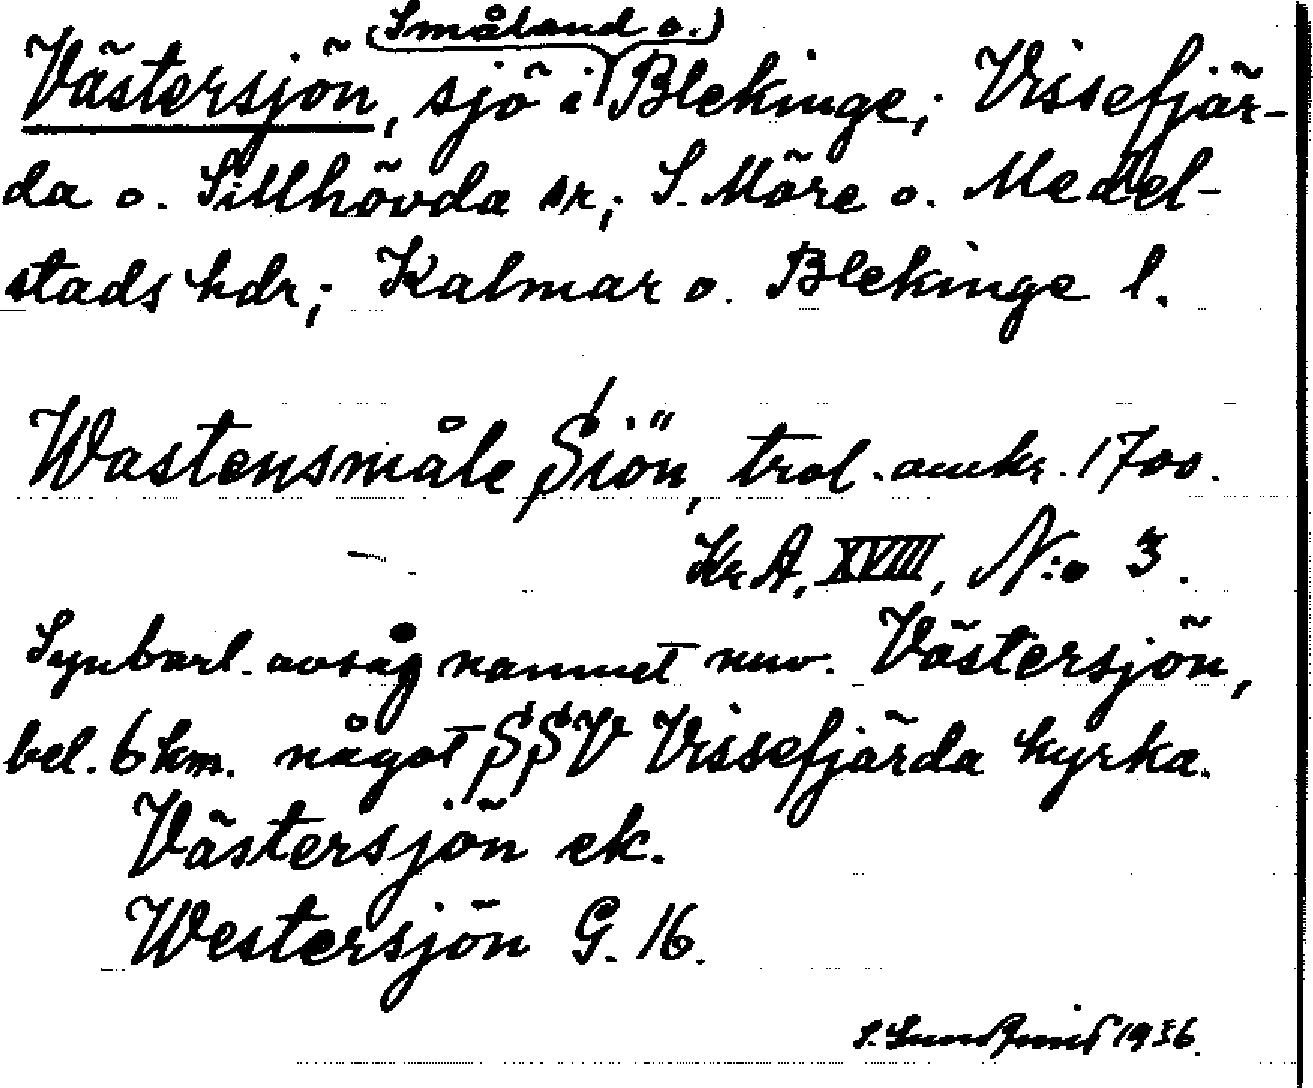 Västersjön, sjö i (Småland o.) Blekinge; Vissefjär-
da o. Sillhövda snr; S. Möre o. Medel-
stads hdr; Kalmar o. Blekinge l.
Wastensmåle Siön, trol. omkr. 1700.
KrA, XVIII, N:o 3.
Synbarl. avsåg namnet nuv. Västersjön,
bel. 6 km. något SSV Vissefjärda kyrka.
Västersjön ek.
Westersjön G. 16.
1936.